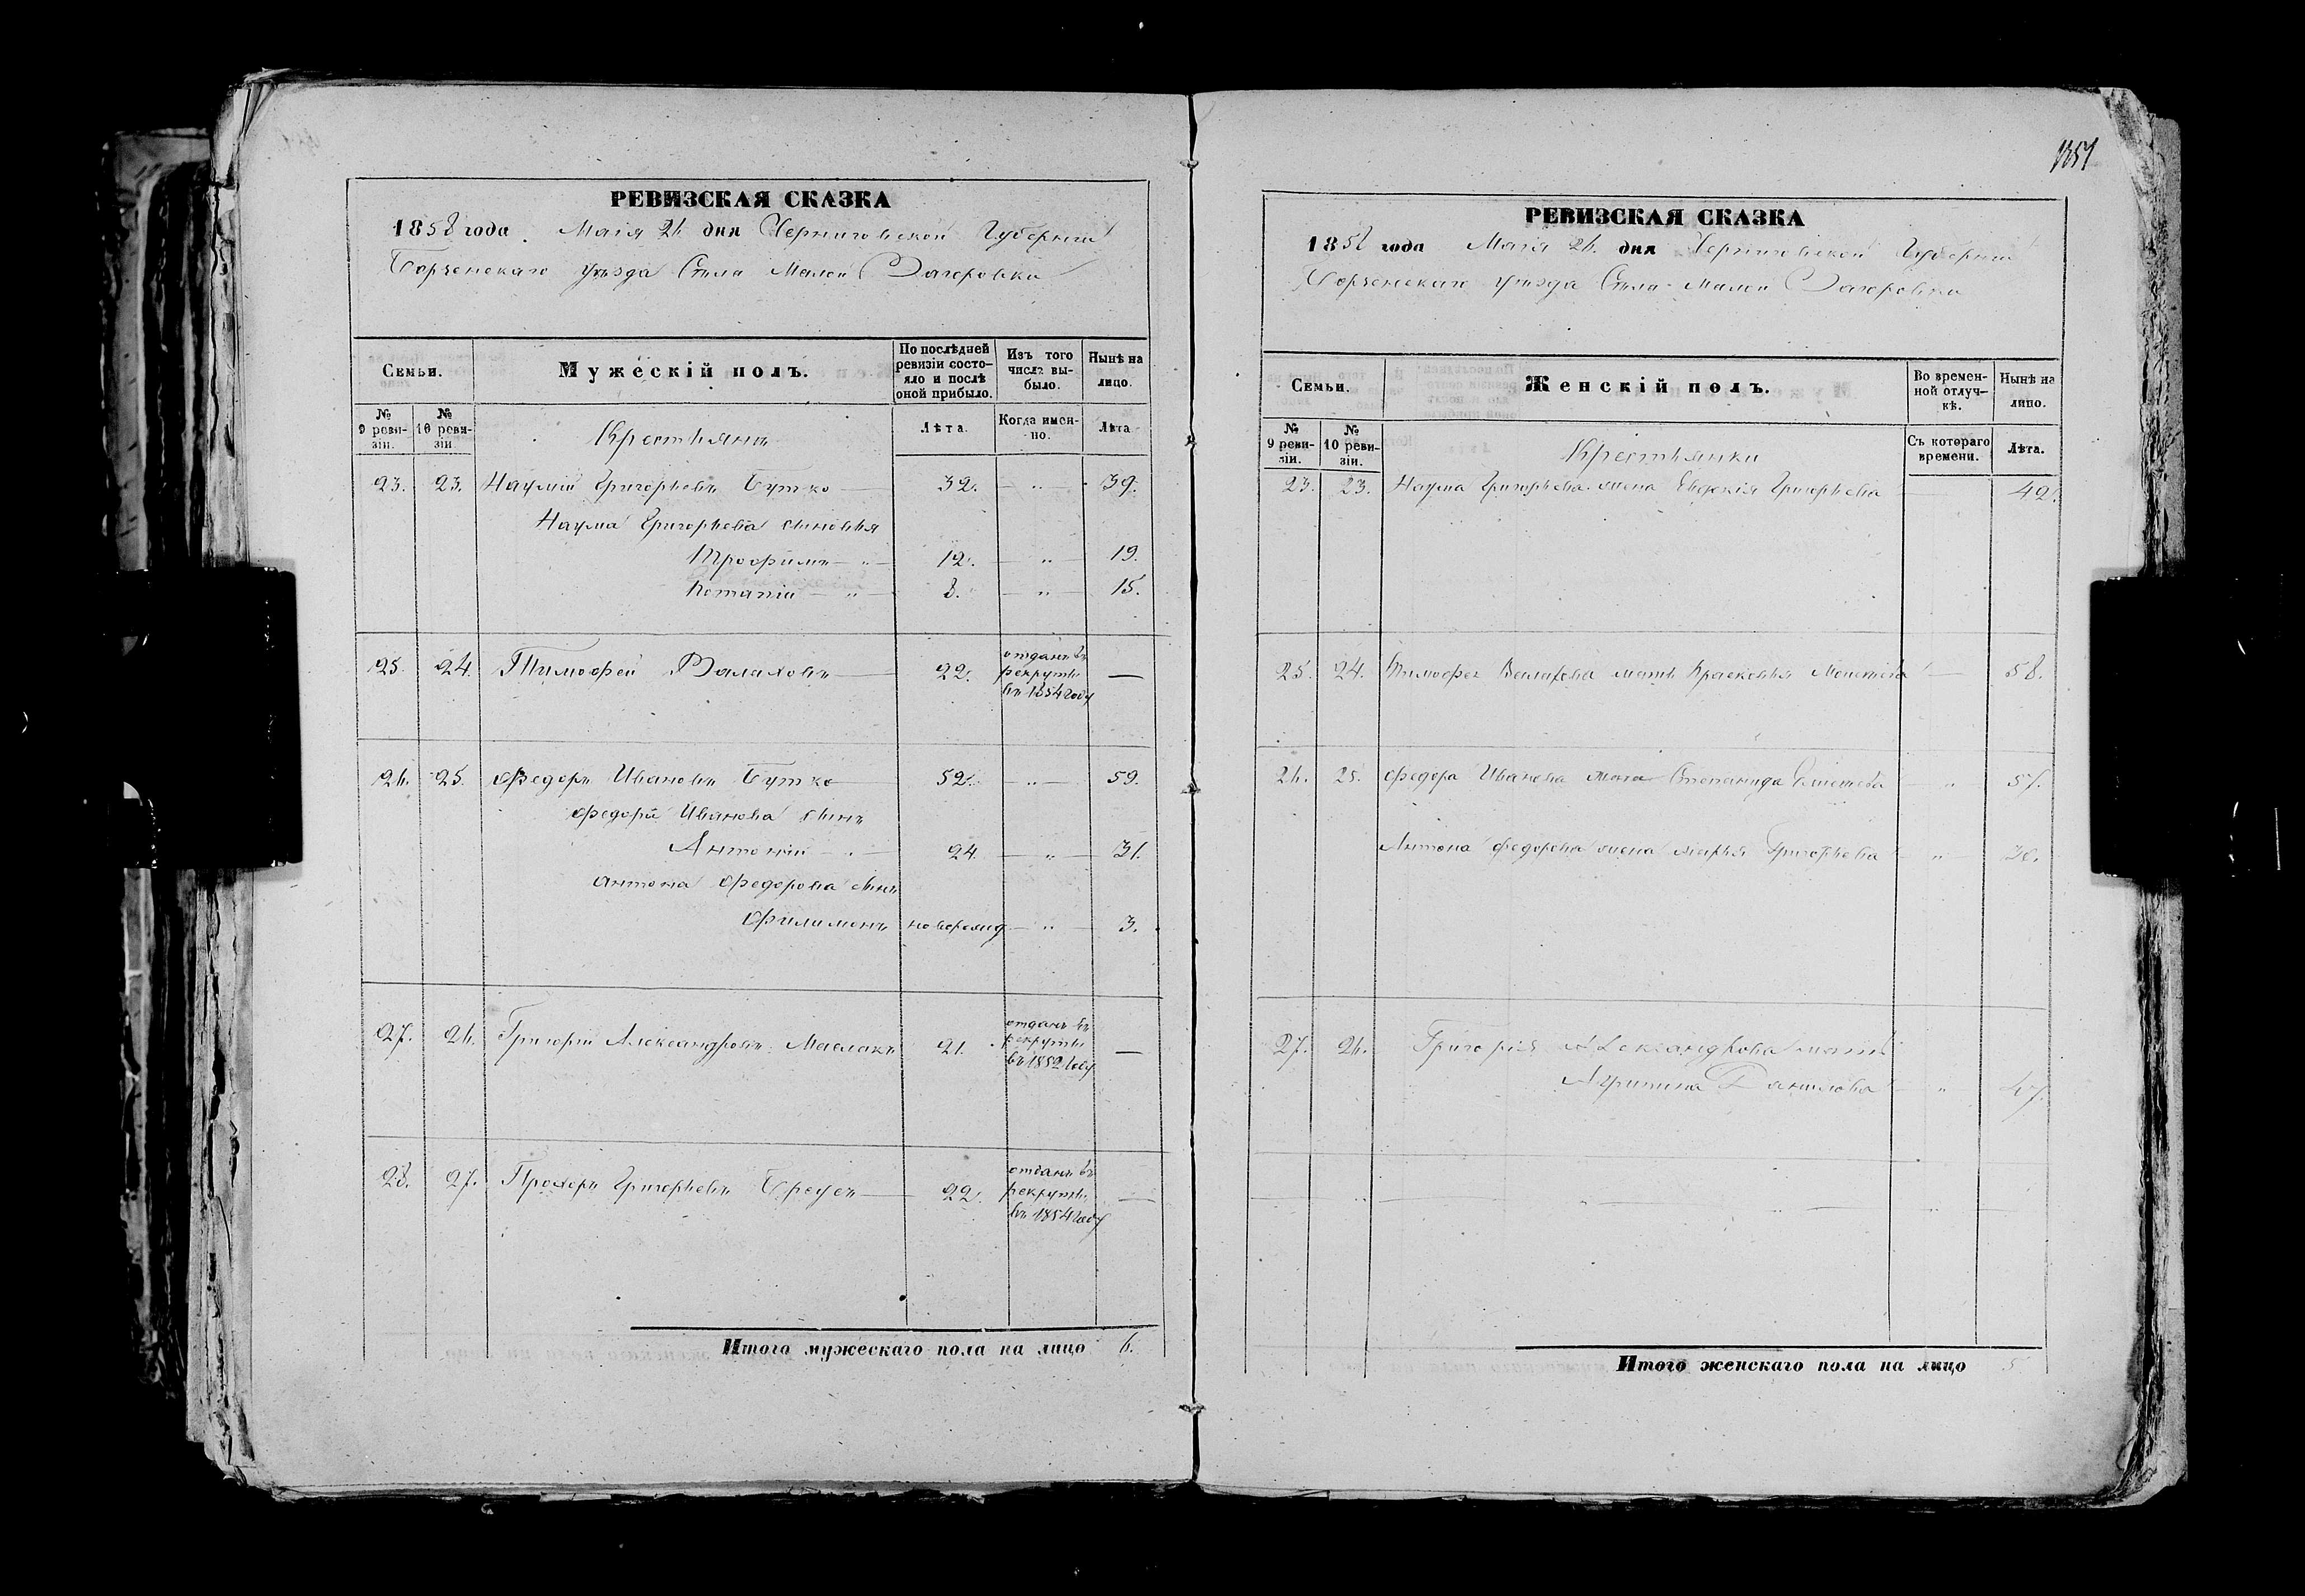 1351
РЕВИЗСКАЯ СКАЗКА
1858 года Маія 26 дня Черниговской Губерніи
Борзенскаго уѣзда Села Малой Загоровки
Семьи.
Мужескій полъ.
По послѣдней ревизіи состояло и послѣ оной прибыло.
Изъ того числа выбыло.
Нынѣ на лицо.
№ 9 ревизіи.
№ 10 ревизіи.
Крестьяне
Лѣта.
Когда именно.
Лѣта.
23. 23. Наумъ Григорьевъ Бутко 32. " 39.
Наума Григорьева сыновья
Трофимъ " 12. " 19.
Потапій " 8. " 15.
25. 24. Тимофей 22. отданъ въ рекруты въ 1854 году —
26. 25. Федоръ Ивановъ Бутко 52. " 59.
Федора Иванова сынъ
Антоній " 24. " 31.
Антона Федорова сынъ
Филимонъ новорожд " 3.
27. 26. Григорій Александровъ Маслакъ 21. отданъ въ рекруты въ 1852 году —
28. 27. Прохоръ Григорьевъ 22. отданъ въ рекруты въ 1854 году —
Итого мужескаго пола на лицо 6.
РЕВИЗСКАЯ СКАЗКА
1858 года Маія 26. дня Черниговской Губерніи
Борзенскаго уѣзда Села Малой Загоровки
Семьи.
Женскій полъ.
Во временной отлучкѣ.
Нынѣ на лицо.
№ 9 ревизіи.
№ 10 ревизіи.
Крестьянки
Съ котораго времени.
Лѣта.
23. 23. Наума Григорьева жена Евдокія Григорьева 42.
25. 24. Тимофея мать Прасковья 58.
26. 25. Федора Иванова жена Степанида " 57.
Антона Федорова жена Марья Григорьева " 30.
27. 26. Григорія Александрова мать
Агрипина Данилова " 47.
Итого женскаго пола на лицо 5